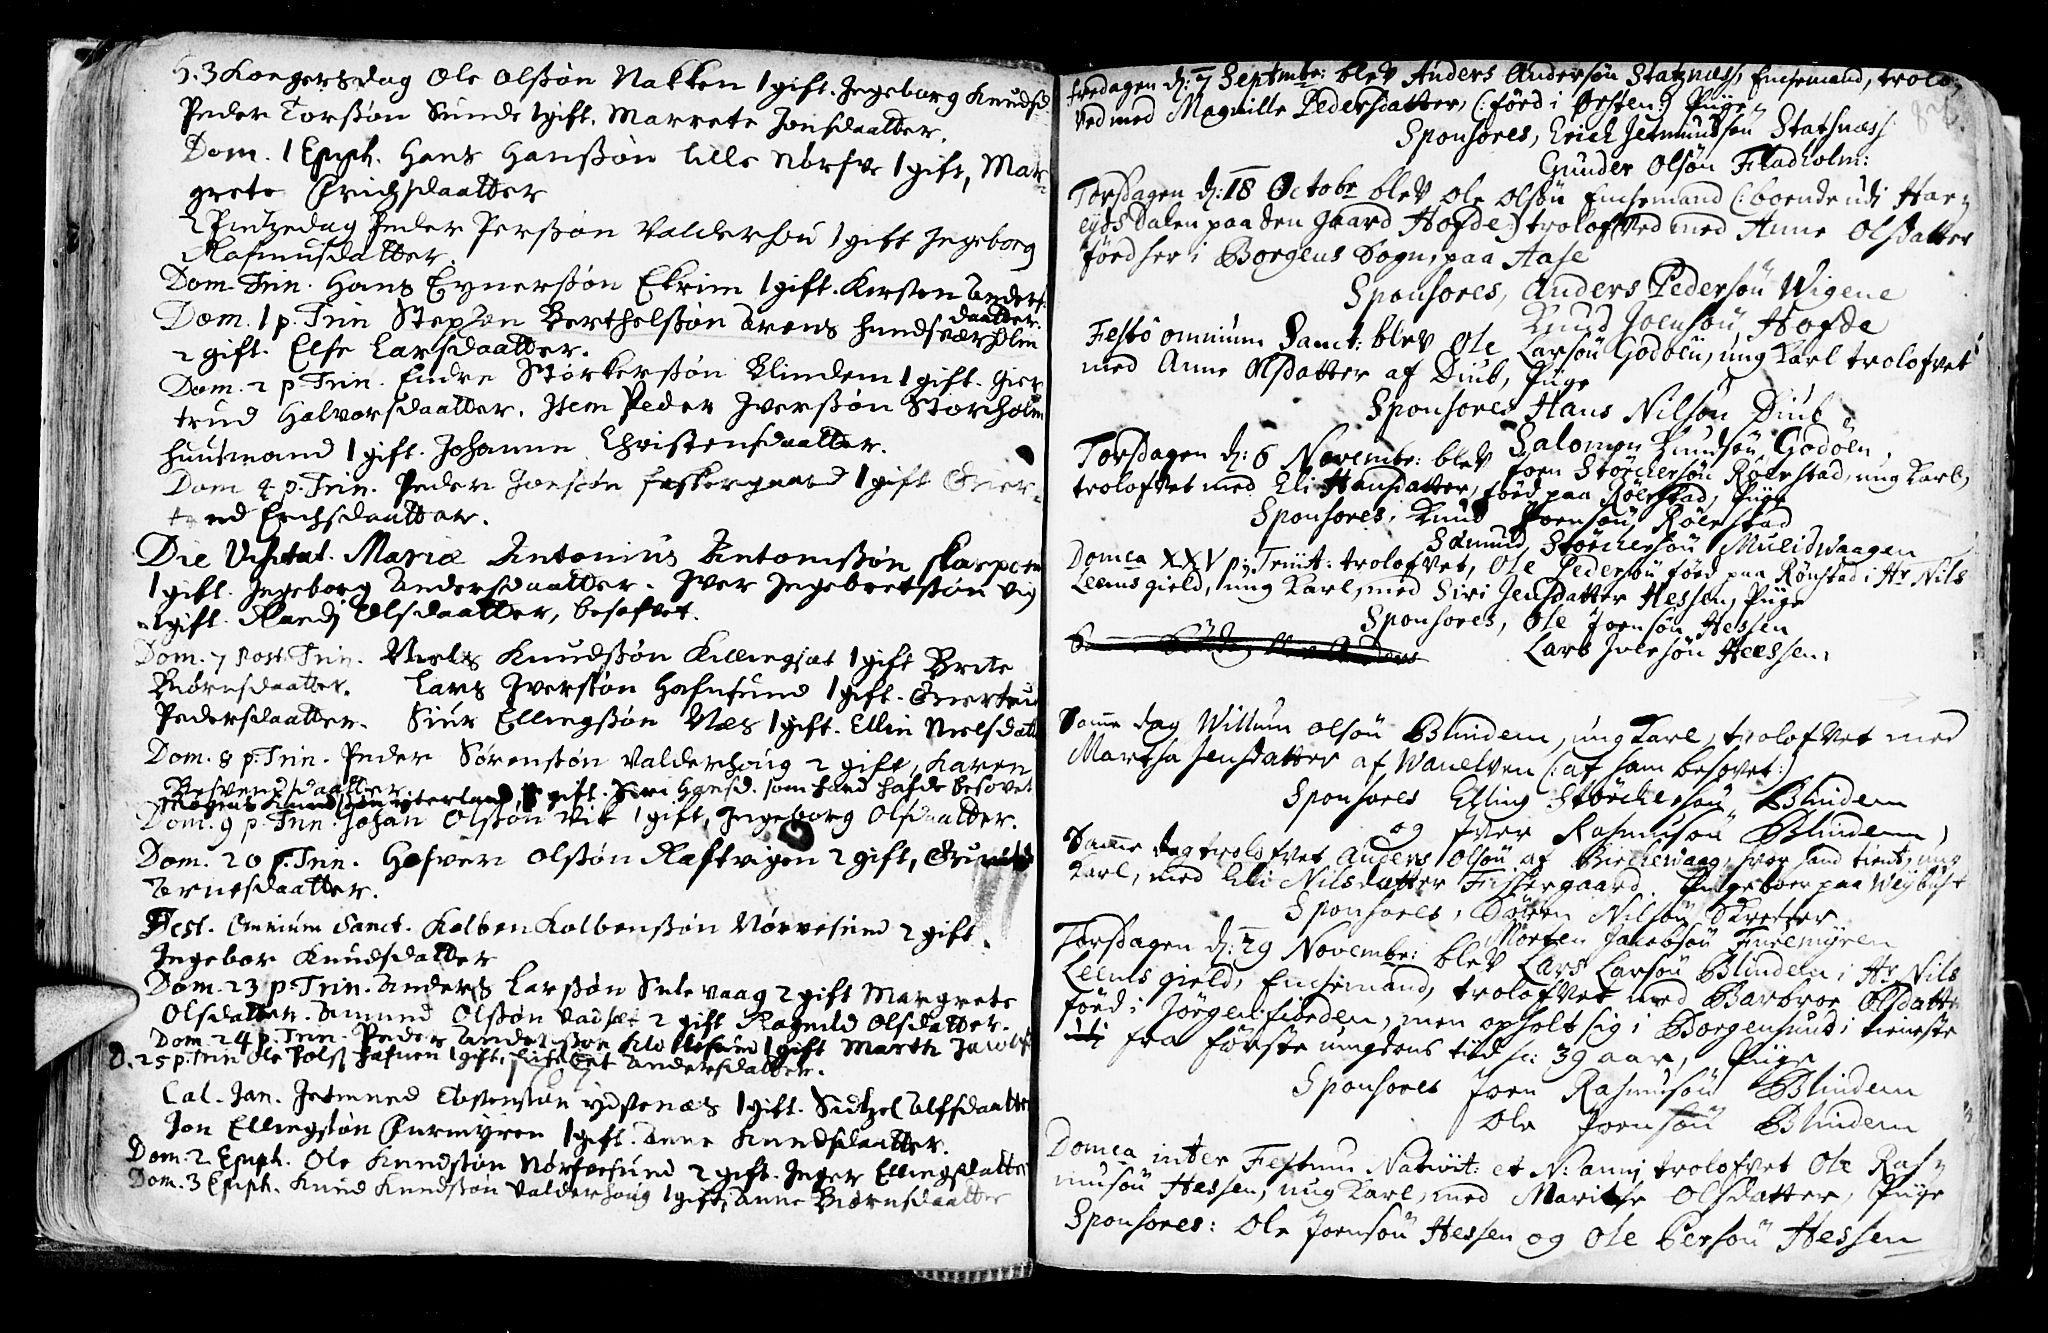 H. 3 Kongersdag Ole Olssøn Nakken 1 gift. Ingeborg Knudsd
Peder Torssøn Sunde 1 gift. Marrete Jonsdaatter.
Dom. 1 Epiph. Hans Hanssøn lille Nørfve 1 gift, Mar-
grete Erichsdaatter
2 Pintzedag Peder Perssøn Valderhou 1 gift Ingeborg
Rasmusdaatter.
Dom. Trin. Hans Eynerssøn Ekrim 1 gift. Kirsten Anders-
daatter.
Dom. 1 p. Trin Stephen Berthelssøn Arens hundsværholm
2 gift. Else Larsdaatter.
Dom. 2 p Trin. Endre Størkerssøn Blindem 1 gift. Gier
trud Halvorsdaatter. Item Peder Iverssøn Storholm
huusmand 1 gift. Johanne Christensdaatter.
Dom 4 p. Trin. Peder Jonssøn fiskergaard 1 gift Gier-
trud Erichsdaatter.
Die Visitat. Mariæ Antonius Antonissøn skarperm
1 gift. Ingeborg Andersdaatter. Iver Ingebretssøn Vig
1 gift. Randj Olsdaatter, besofvet.
Dom. 7 post. Trin. Niels Knudssøn Killingsæt 1 gift Brite
Biørnsdaatter. Lars Iverssøn Hafnsund 1 gift. Giertrud
Pedersdaatter. Siur Ellingssøn Næs 1 gift. Ellin Nielsdatt
Dom. 8 p. Trin. Peder Sørenssøn Valderhoug 2 gift, Karen
Resvensdaatter
Mogens Knudssøn yterland, 1 gift. Siri Hansd. som hand hafde besovet
Dom. 9 p. Trin. Johan Olssøn Vik 1 gift, Ingeborg Olsdaatter.
Dom. 20 p. Trin. Hasven Olssøn Ræftvigen 2 gift,
Arnesdaatter.
Fest. Omnium Sanct. Kolben Kolbenssøn Nørvesund 2 gift.
Ingebor Knudsdatter
Dom. 23 p Trin. Anders Larssøn Sulevaag 2 gift Margrete
Olsdatter. Amund Olssøn Vadset 2 gift Ragnild Olsdatter.
Dom. 24 p. Trin. Peder Anderssøn Kloksund 1 gift Marth Jacobsd
D. 25 p. Trin Ole Polss Hafnen 1 gift. Lisebet Andersdatter.
Cal. Jan. Jetmund Tostenssøn ydstenæs 1 gift. Sidtzel Ulffsdaatter
Jon Ellingssøn Furmyren 1 gift. Anne Knudsdaatter.
Dom. 2 Epiph. Ole Knudssøn Nørfvesund 2 gift. Inger Ellingsdatter
Dom. 3 Epiph. Knud Knudssøn Valderhoug 1 gift, Anne Biørnsdaatter
fredagen d: 7 Septembr: blev Anders Andersøn Statznæss, Enchemand, trolo-
ved med Magnille Pedersdatter, (: förd i Örsten:) Piige
Sponsores, Erich Jetmundsøn Statsnæss:
Gunder Olsøn Fladholm:
Torsdagen d: 18 Octobr blev Ole Olsøn Enchemand (: boende udi Har-
eyds Dalen paa den gaard Hofde:) trolofved med Anne Olsdatter
förd her i Borgens Sogn, paa Aase
Sponsores, Anders Pedersøn Wigene
Knud Joensøn, Hofde
Festo omnium Sanct: blev Ole Larsøn Godøen, ung Karl trolofvet
med Anne Olsdatter af Diub, Piige
Sponsores Hans Nilsøn Diub
Salomon Knudsøn, Godöen,
Torsdagen d: 6 Novembr: blev Joen Störchersøn Röerstad, ung Karl,
trolofvet med Eli Hansdatter, förd paa Röerstad, Piige
Sponsores, Knud Joensøn, Röerstad
Samund Störchersøn Mulidvaagen
Domca XXV p: Trinit: trolofvet, Ole Pedersøn förd paa Rönstad i Hr Nils
Leemsgield, ung Karl, med Siri Jensdatter Hessen, Piige
Sponsores, Ole Joensøn Hessen
Lars Iversøn Hessen,
Samme dag Willum Olsøn Blindem, ung Karl, trolofvet med
Martha Jensdatter af Wanelven (: af ham besovet:)
Sponsores Elling Störchersøn, Blindem
og Iver Rasmusøn Blindem,
Samme dag trolofvet Anders Olsøn af Birchevaag, hvor hand tient, ung
Karl, med Eli Nilsdatter Fischergaard. Piige boer paa Weybust
Sponsores, Sören Nilsøn Skretter
Morten Jacobsøn Furemyren
Torsdagen d: 29 Novembr: blev Lars Larsøn Blindem i Hr Nils
Leemsgield, Enchemand, trolofvet med Barbroe Olsdatter
förd i Jörgenfiorden, men opholt sig i Borgensund i tieneste
fra förste ungdoms tiid sc: 39 aar, Piige
Sponsores Joen Rasmusøn Blindem
Ole Joensøn Blindem
Domca inter Festum Nativit: et N: anni trolofvet Ole Ras-
musøn Hessen, ung Karl, med Marithe Olsdatter, Piige
Sponsores: Ole Joensøn Hessen og Ole Persøn Hessen